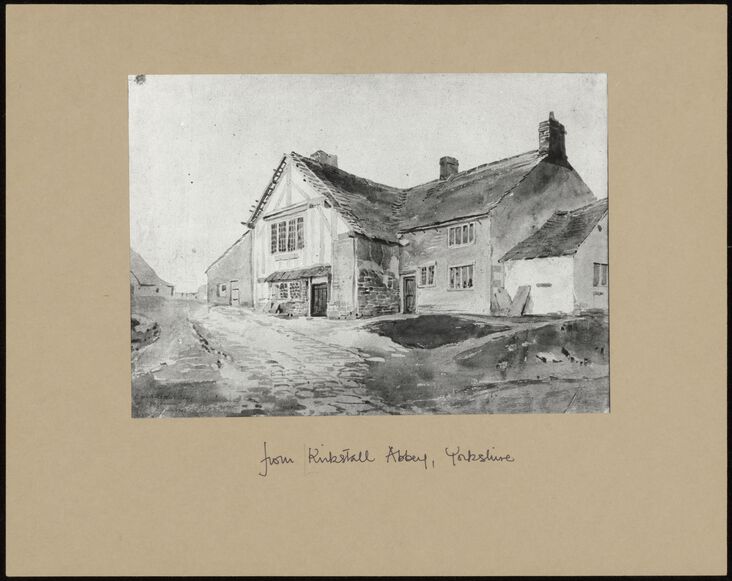 from Kirkstall Abbey, Yorkshire